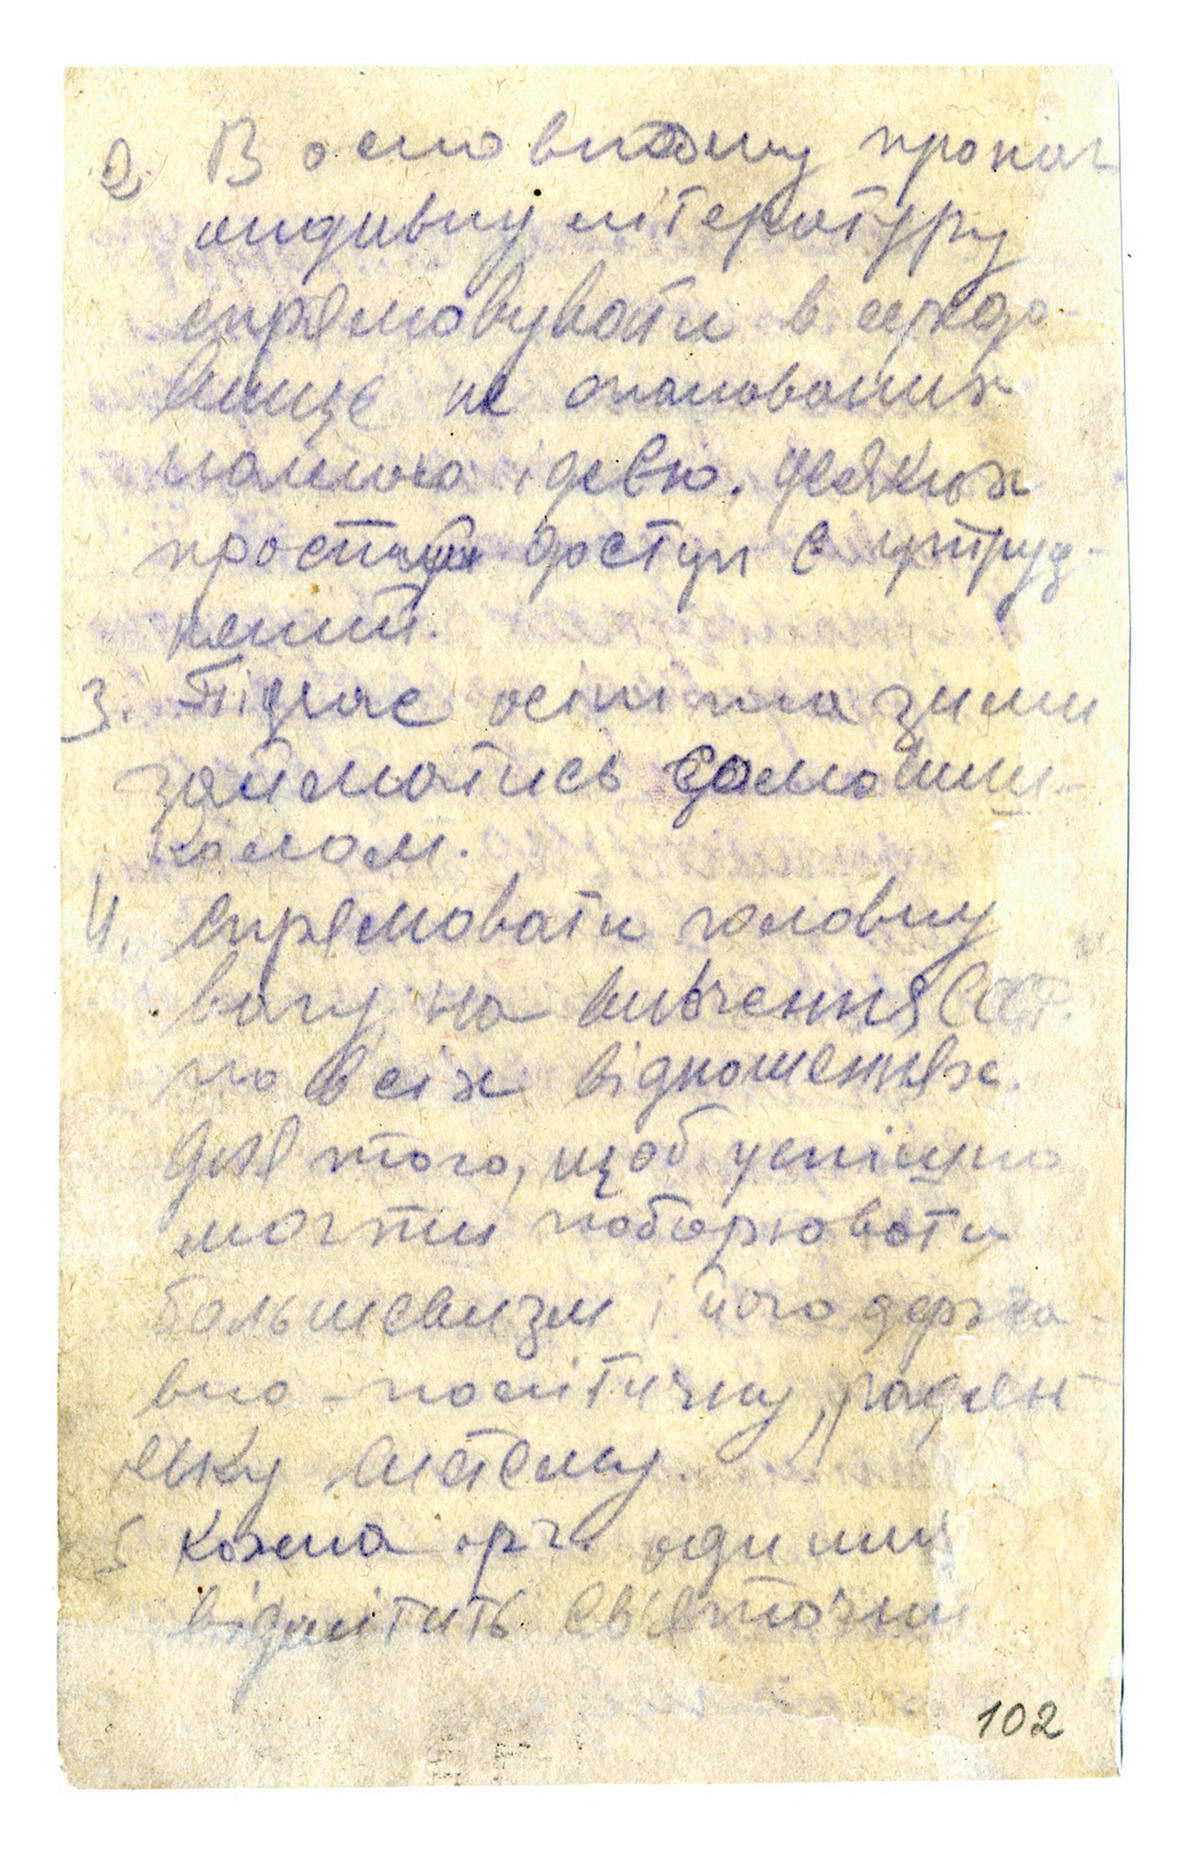 2. В основному пропаг
андивну літературу
спрямовувати в середо-
вище не опанованих
нашою ідеєю.
доступ є утруд-
нений.
3. Підчас осіни та зими
займатись самовиш-
колом.
4. Спрямовати головну
вагу на вивчення СССР.
по всіх відношеннях.
Для того, щоб успішно
могти поборювати
большевизм і його держа-
вно-політичну, радян
ську систему.
5 Кожна орг. один.
відмітить святочни
102